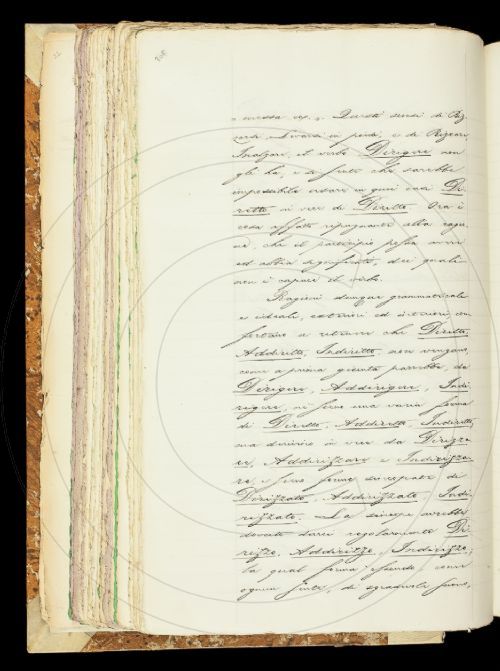 e mossa ex. Questi sensi di Riz
zarsi, Levarsi in piedi, e di Rizzare,
Inalzare, il verbo Dirigere non
gli ha, e di fatto che sarebbe
impossibile usare in quei casi Di
retto in vece di Diritto. Ora è
cosa affatto ripugnante alla ragio
ne, che il participio possa avere
ed abbia significati, dei quali
non è capace il verbo.
Ragioni dunque grammaticali
e ideali, esteriori ed interiori con
fortano a ritenere che Diritto,
Addiritto, Indiritto non vengano,
come a prima giunta parrebbe, da
Dirigere, Addirigere, Indi
rigere, nè sieno una varia forma
di Diretto, Addiretto, Indiretto,
ma derivino in vece da Dirizza
re, Addirizzare e Indirizza
re, e sieno forme sincopate di
Dirizzato, Addirizzato, Indi
rizzato. La sincope avrebbe
dovuto dare regolarmente Di
rizzo, Addirizzo, Indirizzo,
la qual forma essendo, come
ognun sente, di sgradevole suono,